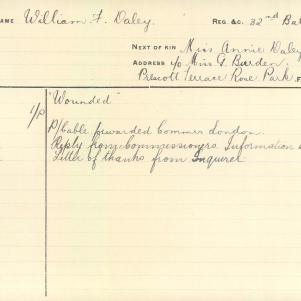 NAME William F. Daley. REG. &C. 32nd Bat
NEXT OF KIN Miss Annie Daley
ADDRESS c/o Miss G. Burden.
Prescott Terrace Rose Park,
"Wounded"
P/Cable forwarded Commr London.
Reply from Commissioners Information
Letter of thanks from Inquirer